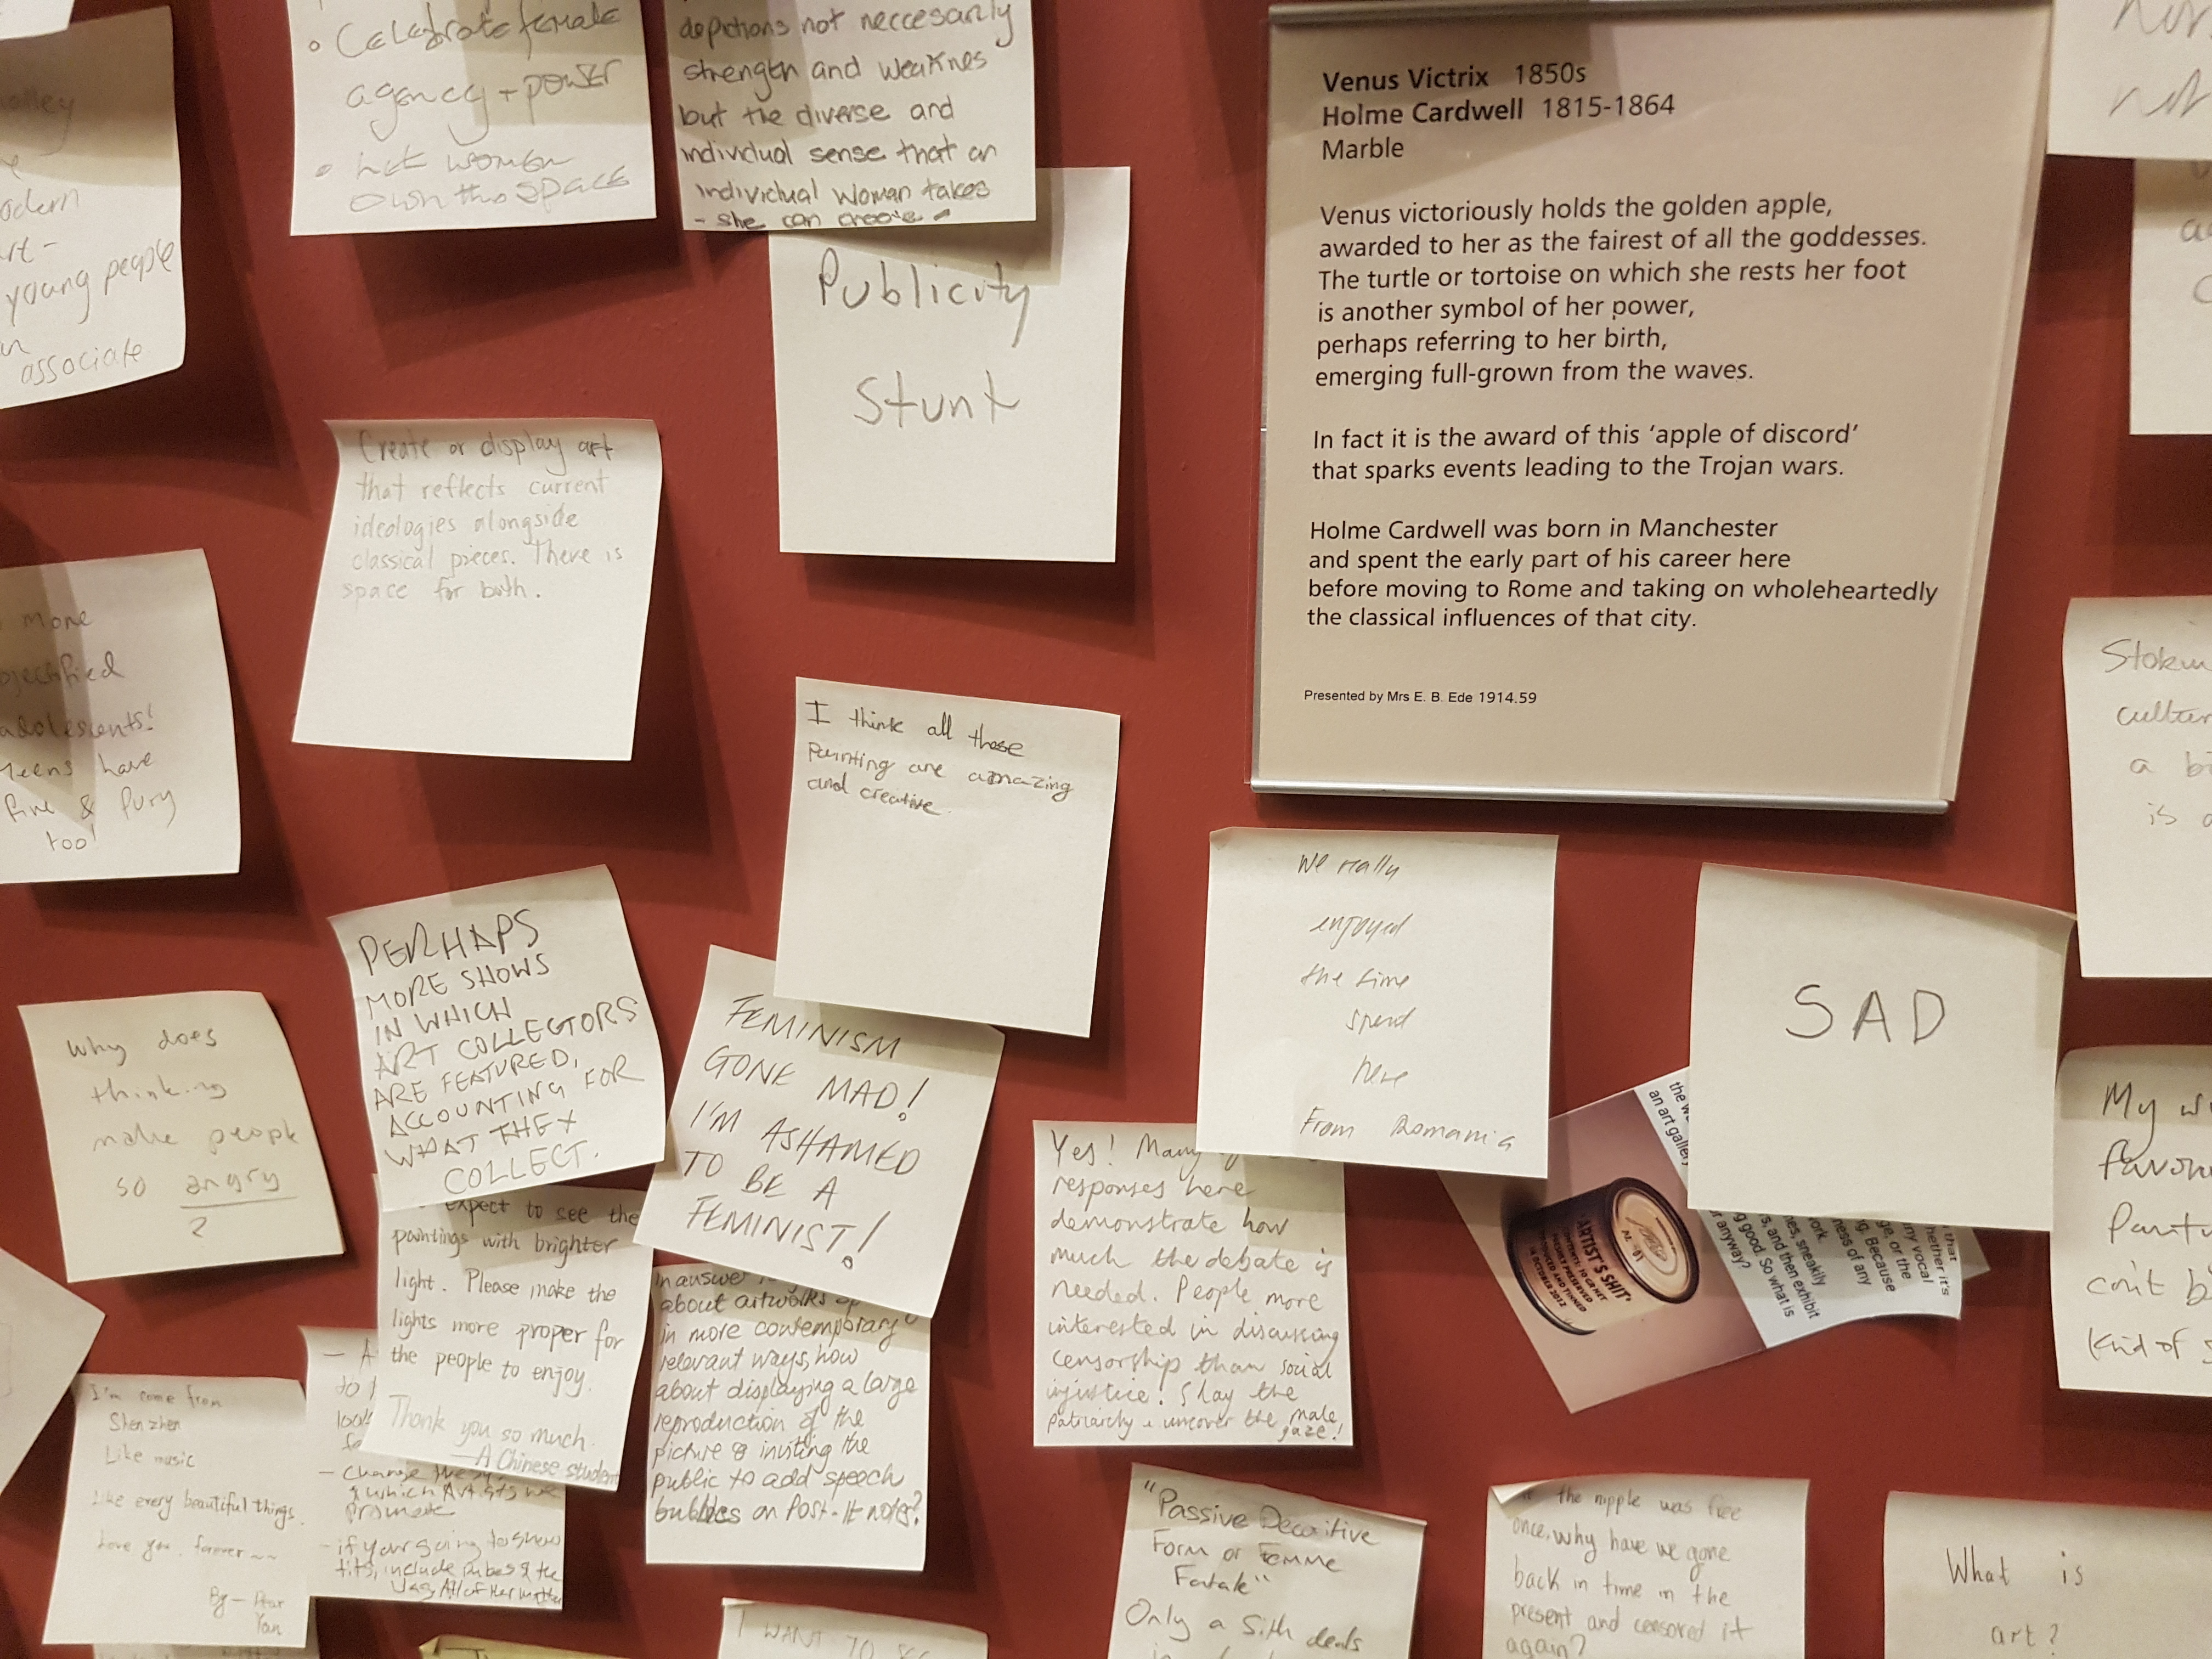 Celebrate female
agency + power
let women
own this space
depictions not neccesarily
strength and weaknes
but the diverse and
individual sense that an
individual woman takes
- she can choose -
Venus Victrix 1850s
Holme Cardwell 1815-1864
Marble
Venus victoriously holds the golden apple,
awarded to her as the fairest of all the goddesses.
The turtle or tortoise on which she rests her foot
is another symbol of her power,
perhaps referring to her birth,
emerging full-grown from the waves.
In fact it is the award of this 'apple of discord'
that sparks events leading to the Trojan wars.
Holme Cardwell was born in Manchester
and spent the early part of his career here
before moving to Rome and taking on wholeheartedly
the classical influences of that city.
Presented by Mrs E. B. Ede 1914.59
young people
associate
Publicity
Stunt
Create or display art
that reflects current
ideologies alongside
classical pieces. There is
space for both.
more
adolescents!
Teens have
fire & fury
too!
I think all these
Painting are amazing
and creative.
We really
enjoyed
the time
spend
here
From Romania
SAD
culture
a
is
PERHAPS
MORE SHOWS
IN WHICH
ART COLLECTORS
ARE FEATURED,
ACCOUNTING FOR
WHAT THEY
COLLECT.
Why does
thinking
make people
so angry
?
FEMINISM
GONE MAD!
I'M ASHAMED
TO BE A
FEMINIST!
Yes! Many
responses here
demonstrate how
much the debate is
needed. People more
interested in discussing
censorship than social
injustice! Slay the
patriarchy + uncover the male
gaze!
an art gallery
'ARTIST'S SHIT'
CONTENTS: 30 GR NET
FRESHLY PRESERVED
PRODUCED AND TINNED
IN OCTOBER 2012
s, and then exhibit
g good. So what is
anyway?
My
Kind of
expect to see the
paintings with brighter
light. Please make the
lights more proper for
the people to enjoy.
Thank you so much.
- A Chinese student
in answer
about artworks
in more contemporary
relevant ways, how
about displaying a large
reproduction of the
picture & inviting the
public to add speech
bubbles on Post-It notes?
I'm come from
Shenzhen
Like music
Like every beautiful things.
Love you forever ~~
By -
Yan
- change the
& which Artists we
promote
- if your going to show
tits, include pubes & the
"Passive Decoritive
Form or Femme
Fatale"
Only a Sith deals
the nipple was free
once, why have we gone
back in time in the
present and censored it
again?
What is
art?
I WANT TO